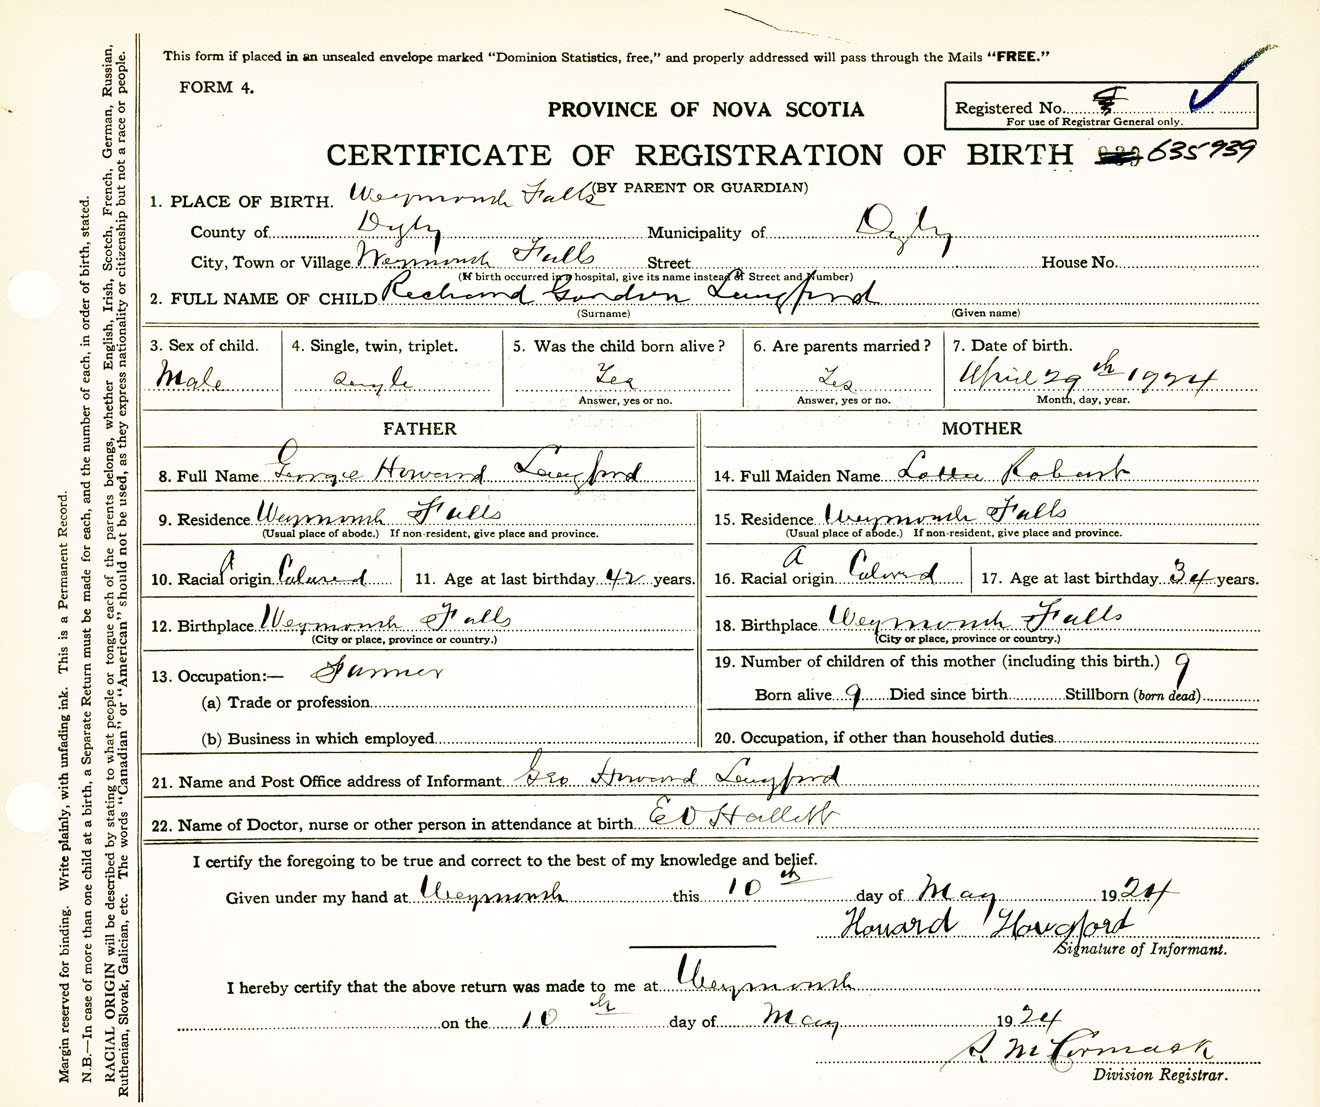 This form if placed in an unsealed envelope marked “Dominion Statistics, free,” and properly addressed will pass through the Mails “FREE.”
FORM 4.
PROVINCE OF NOVA SCOTIA
Registered No.
For use of Registrar General only.
CERTIFICATE OF REGISTRATION OF BIRTH 635939
(BY PARENT OR GUARDIAN)
1. PLACE OF BIRTH. Weymouth Falls
County of Digby Municipality of Digby
City, Town or Village Weymouth Falls Street House No.
(If birth occurred in a hospital, give its name instead of Street and Number)
2. FULL NAME OF CHILD Richard Gordon Langford
(Surname) (Given name)
3. Sex of child. 4. Single, twin, triplet. 5. Was the child born alive? 6. Are parents married? 7. Date of birth.
Male Single Yes Yes April 29th 1924
Answer, yes or no. Answer, yes or no. Month, day, year.
FATHER
8. Full Name George Howard Langford
9. Residence Weymouth Falls
(Usual place of abode.) If non-resident, give place and province.
10. Racial origin Colored 11. Age at last birthday 42 years.
12. Birthplace Weymouth Falls
(City or place, province or country.)
13. Occupation:— Farmer
(a) Trade or profession
(b) Business in which employed
MOTHER
14. Full Maiden Name Lottie Robart
15. Residence Weymouth Falls
(Usual place of abode.) If non-resident, give place and province.
16. Racial origin Colored 17. Age at last birthday 34 years.
18. Birthplace Weymouth Falls
(City or place, province or country.)
19. Number of children of this mother (including this birth.) 9
Born alive 9 Died since birth Stillborn (born dead)
20. Occupation, if other than household duties
21. Name and Post Office address of Informant Geo Howard Langford
22. Name of Doctor, nurse or other person in attendance at birth E D Hallett
I certify the foregoing to be true and correct to the best of my knowledge and belief.
Given under my hand at Weymouth this 10th day of May 1924
Howard
Signature of Informant.
I hereby certify that the above return was made to me at Weymouth
on the 10th day of May 1924
McCormack
Division Registrar.
Margin reserved for binding. Write plainly, with unfading ink. This is a Permanent Record.
N.B.—In case of more than one child at a birth, a Separate Return must be made for each, and the number of each, in order of birth, stated.
RACIAL ORIGIN will be described by stating to what people or tongue each of the parents belongs, whether English, Irish, Scotch, French, German, Russian,
Ruthenian, Slovak, Galician, etc. The words “Canadian” or “American” should not be used, as they express nationality or citizenship but not a race or people.